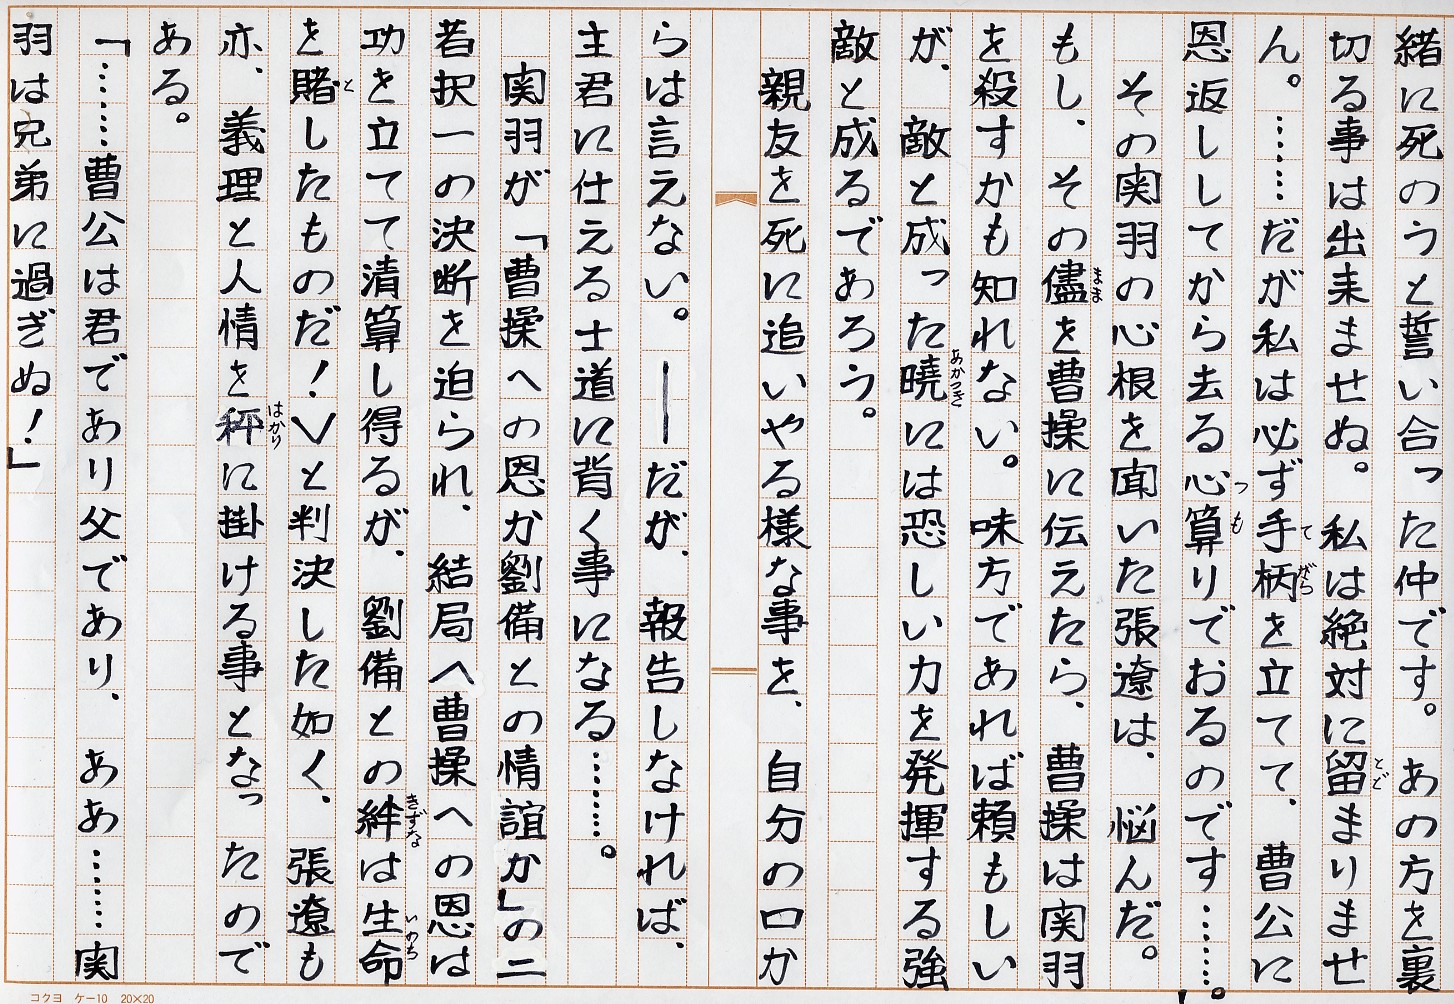 緒に死のうと誓い合った仲です。あの方を裏
切る事は出来ませぬ。私は絶対に留まりませ
とど
ん。……だが私は必ず手柄を立てて、曹公に
てがら
恩返ししてから去る心算りでおるのです……。」
つも
その関羽の心根を聞いた張遼は、悩んだ。
もし、その儘を曹操に伝えたら、曹操は関羽
まま
を殺すかも知れない。味方であれば頼もしい
が、敵と成った暁には恐しい力を発揮する強
あかつき
敵と成るであろう。
親友を死に追いやる様な事を、自分の口か
らは言えない。──だが、報告しなければ、
主君に仕える士道に背く事になる……。
関羽が「曹操への恩か劉備との情誼か」の二
者択一の決断を迫られ、結局へ曹操への恩は
功を立てて清算し得るが、劉備との絆は生命
きずな
いのち
を賭したものだ!〉と判決した如く、張遼も
と
亦、義理と人情を秤に掛ける事となったので
はかり
ある。
「……曹公は君であり父であり、ああ……関
羽は兄弟に過ぎぬ!」
コクヨ ケー10 20×20